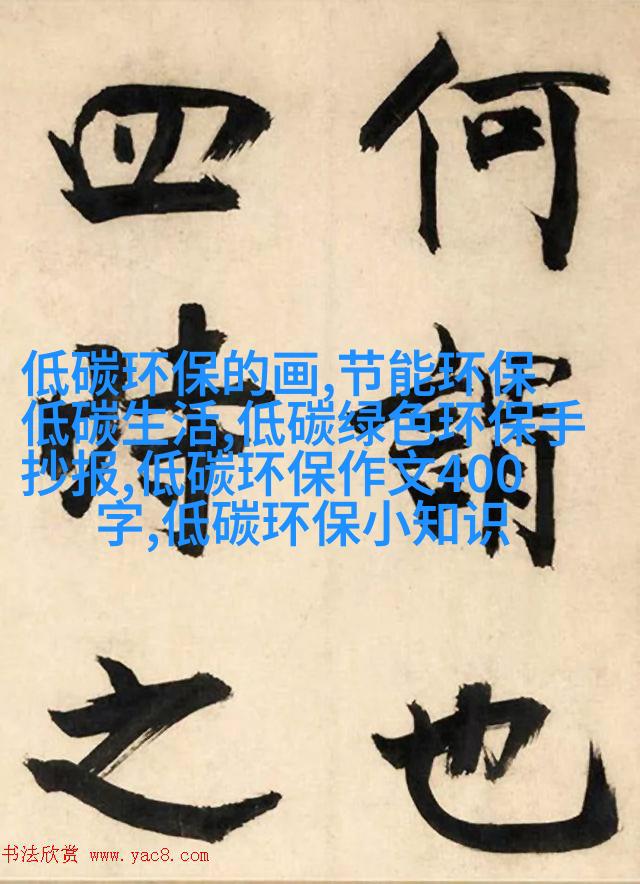 何謂也
四時之
低碳环保的画,节能环保
低碳生活,低碳绿色环保手
抄报,低碳环保作文400
字,低碳环保小知识
书法欣赏 www.yac8.com